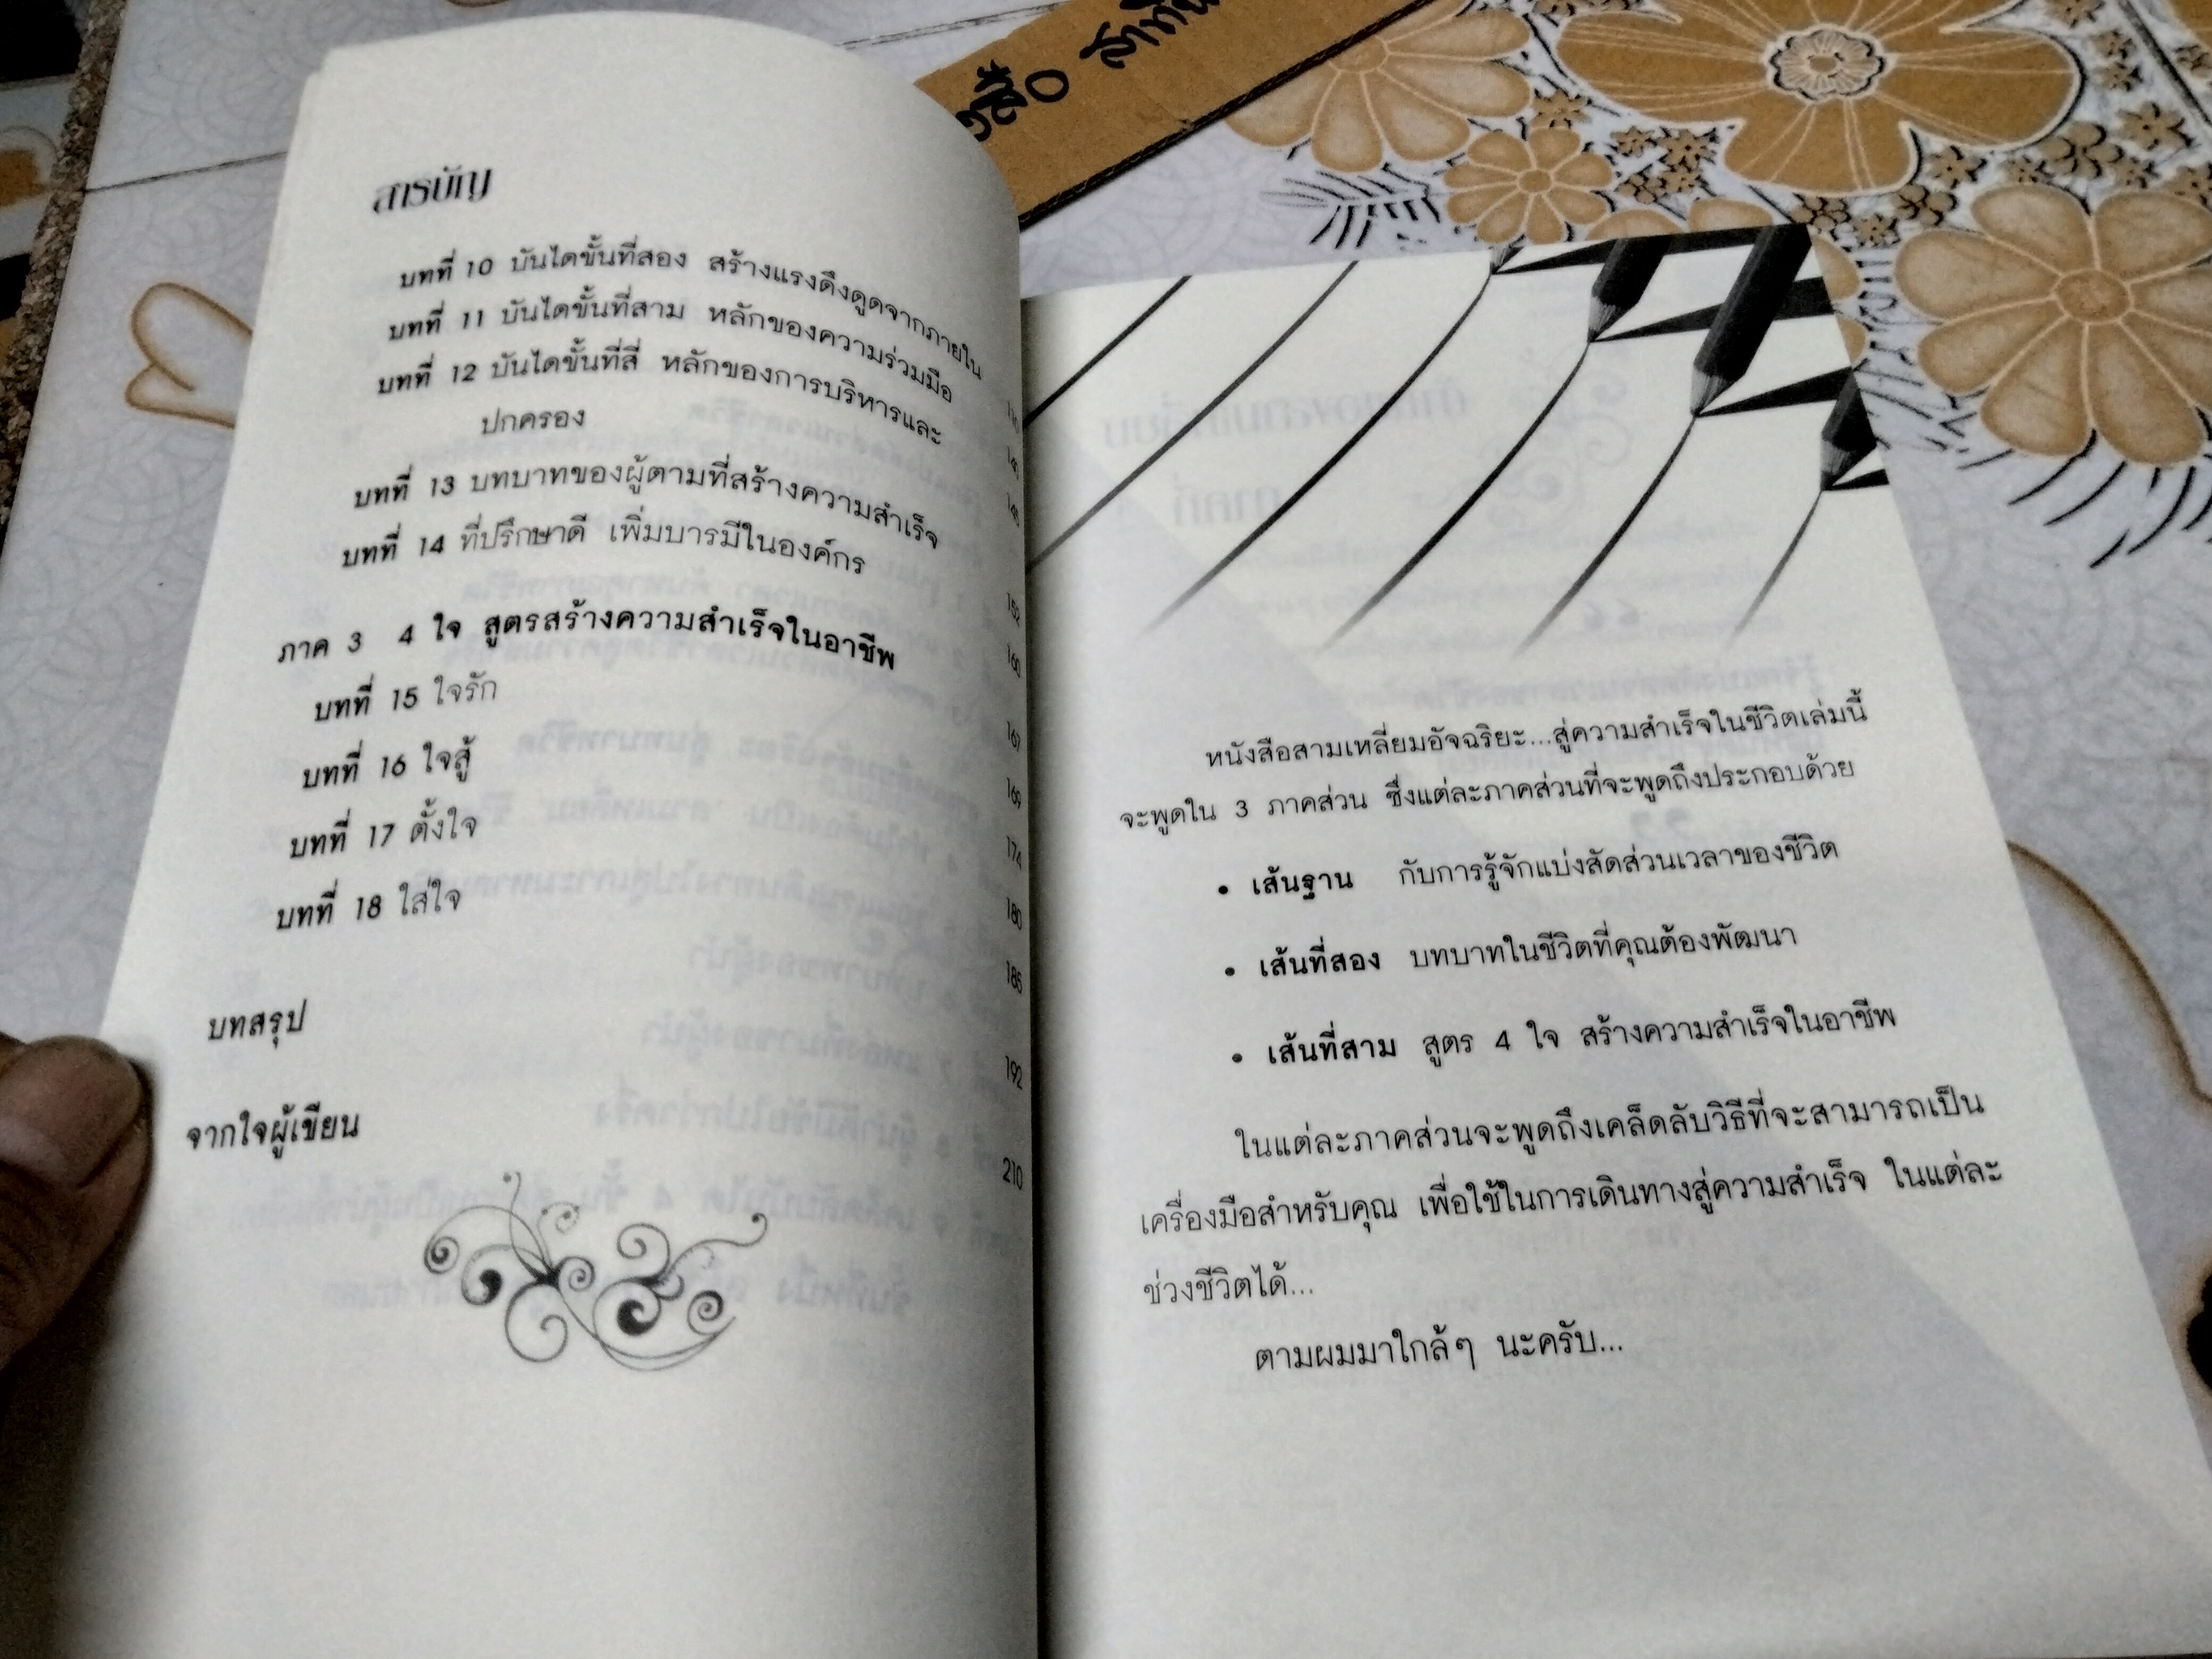 สารบัญ
บทที่ 10 บันไดขั้นที่สอง สร้างแรงดึงดูดจากภายใน
บทที่ 11 บันไดขั้นที่สาม หลักของความร่วมมือ
บทที่ 12 บันไดขั้นที่สี่ หลักของการบริหารและ
ปกครอง
บทที่ 13 บทบาทของผู้ตามที่สร้างความสำเร็จ
บทที่ 14 ที่ปรึกษาดี เพิ่มบารมีในองค์กร 152
ภาค 3 4 ใจ สูตรสร้างความสำเร็จในอาชีพ 160
บทที่ 15 ใจรัก 167
บทที่ 16 ใจสู้ 169
บทที่ 17 ตั้งใจ 174
บทที่ 18 ใส่ใจ 180
185
บทสรุป 192
จากใจผู้เขียน 210
หนังสือสามเหลี่ยมอัจฉริยะ...สู่ความสำเร็จในชีวิตเล่มนี้
จะพูดใน 3 ภาคส่วน ซึ่งแต่ละภาคส่วนที่จะพูดถึงประกอบด้วย
• เส้นฐาน กับการรู้จักแบ่งสัดส่วนเวลาของชีวิต
• เส้นที่สอง บทบาทในชีวิตที่คุณต้องพัฒนา
• เส้นที่สาม สูตร 4 ใจ สร้างความสำเร็จในอาชีพ
ในแต่ละภาคส่วนจะพูดถึงเคล็ดลับวิธีที่จะสามารถเป็น
เครื่องมือสำหรับคุณ เพื่อใช้ในการเดินทางสู่ความสำเร็จ ในแต่ละ
ช่วงชีวิตได้...
ตามผมมาใกล้ๆ นะครับ...